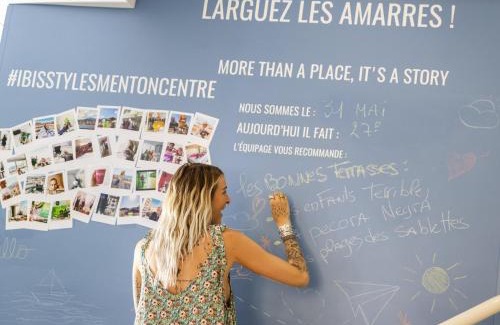 LARGUEZ LES AMARRES !
#IBISSTYLESMENTONCENTRE
MORE THAN A PLACE, IT'S A STORY
NOUS SOMMES LE : 31 MAI
AUJOURD'HUI IL FAIT : 27°
L'ÉQUIPAGE VOUS RECOMMANDE :
les BONNES TERRASSES :
enfants terribles
PECORA NEGRA
plages des Sablettes